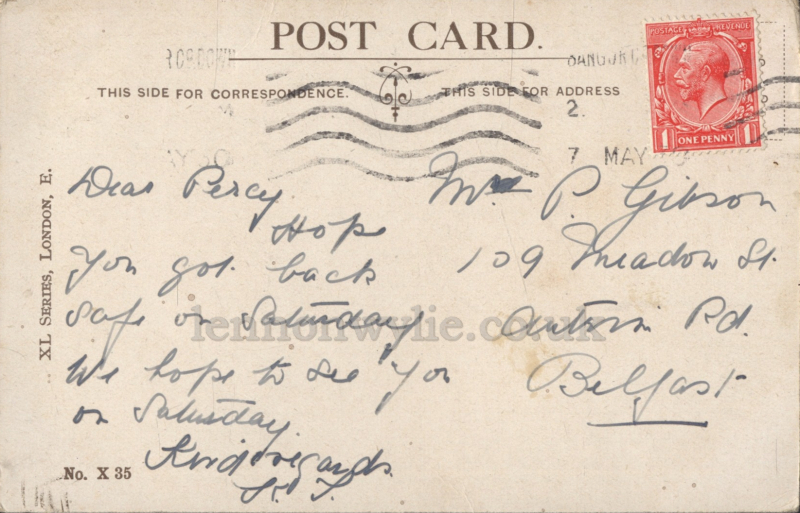 POST CARD.
THIS SIDE FOR CORRESPONDENCE.
THIS SIDE FOR ADDRESS
POSTAGE REVENUE
1 ONE PENNY 1
2.
7 MAY
XL SERIES, LONDON, E.
Dear Percy
Hope
you got back
safe on Saturday
We hope to see you
on Saturday.
Kind regards
No. X 35
P. Gibson
109 Meadow St.
Antrim Rd.
Belfast
lennonwylie.co.uk